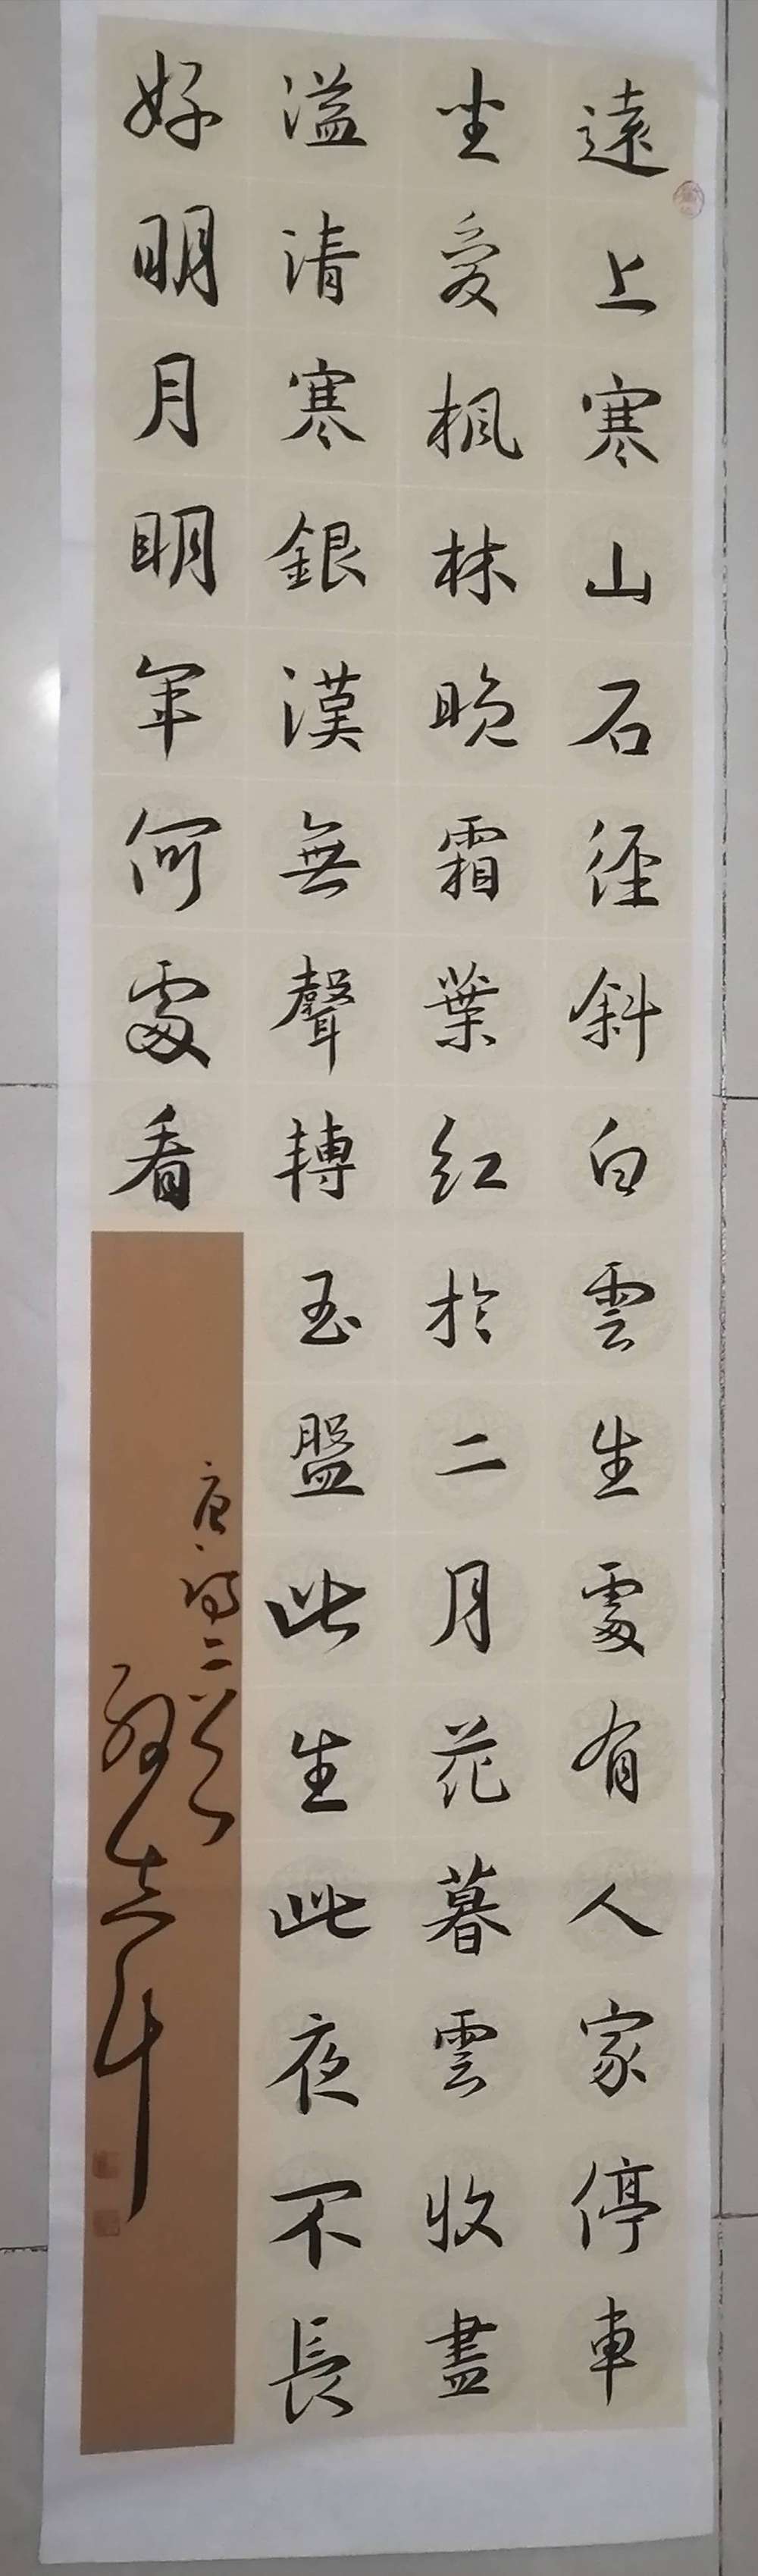 遠上寒山石徑斜白雲生處有人家停車
坐愛楓林晚霜葉紅於二月花暮雲收盡
溢清寒銀漢無聲轉玉盤此生此夜不長
好明月明年何處看
唐詩二首